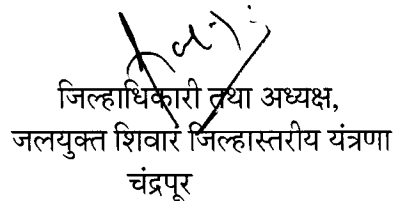 जिल्हाधिकारी तथा अध्यक्ष,
जलयुक्त शिवार जिल्हास्तरीय यंत्रणा
चंद्रपूर